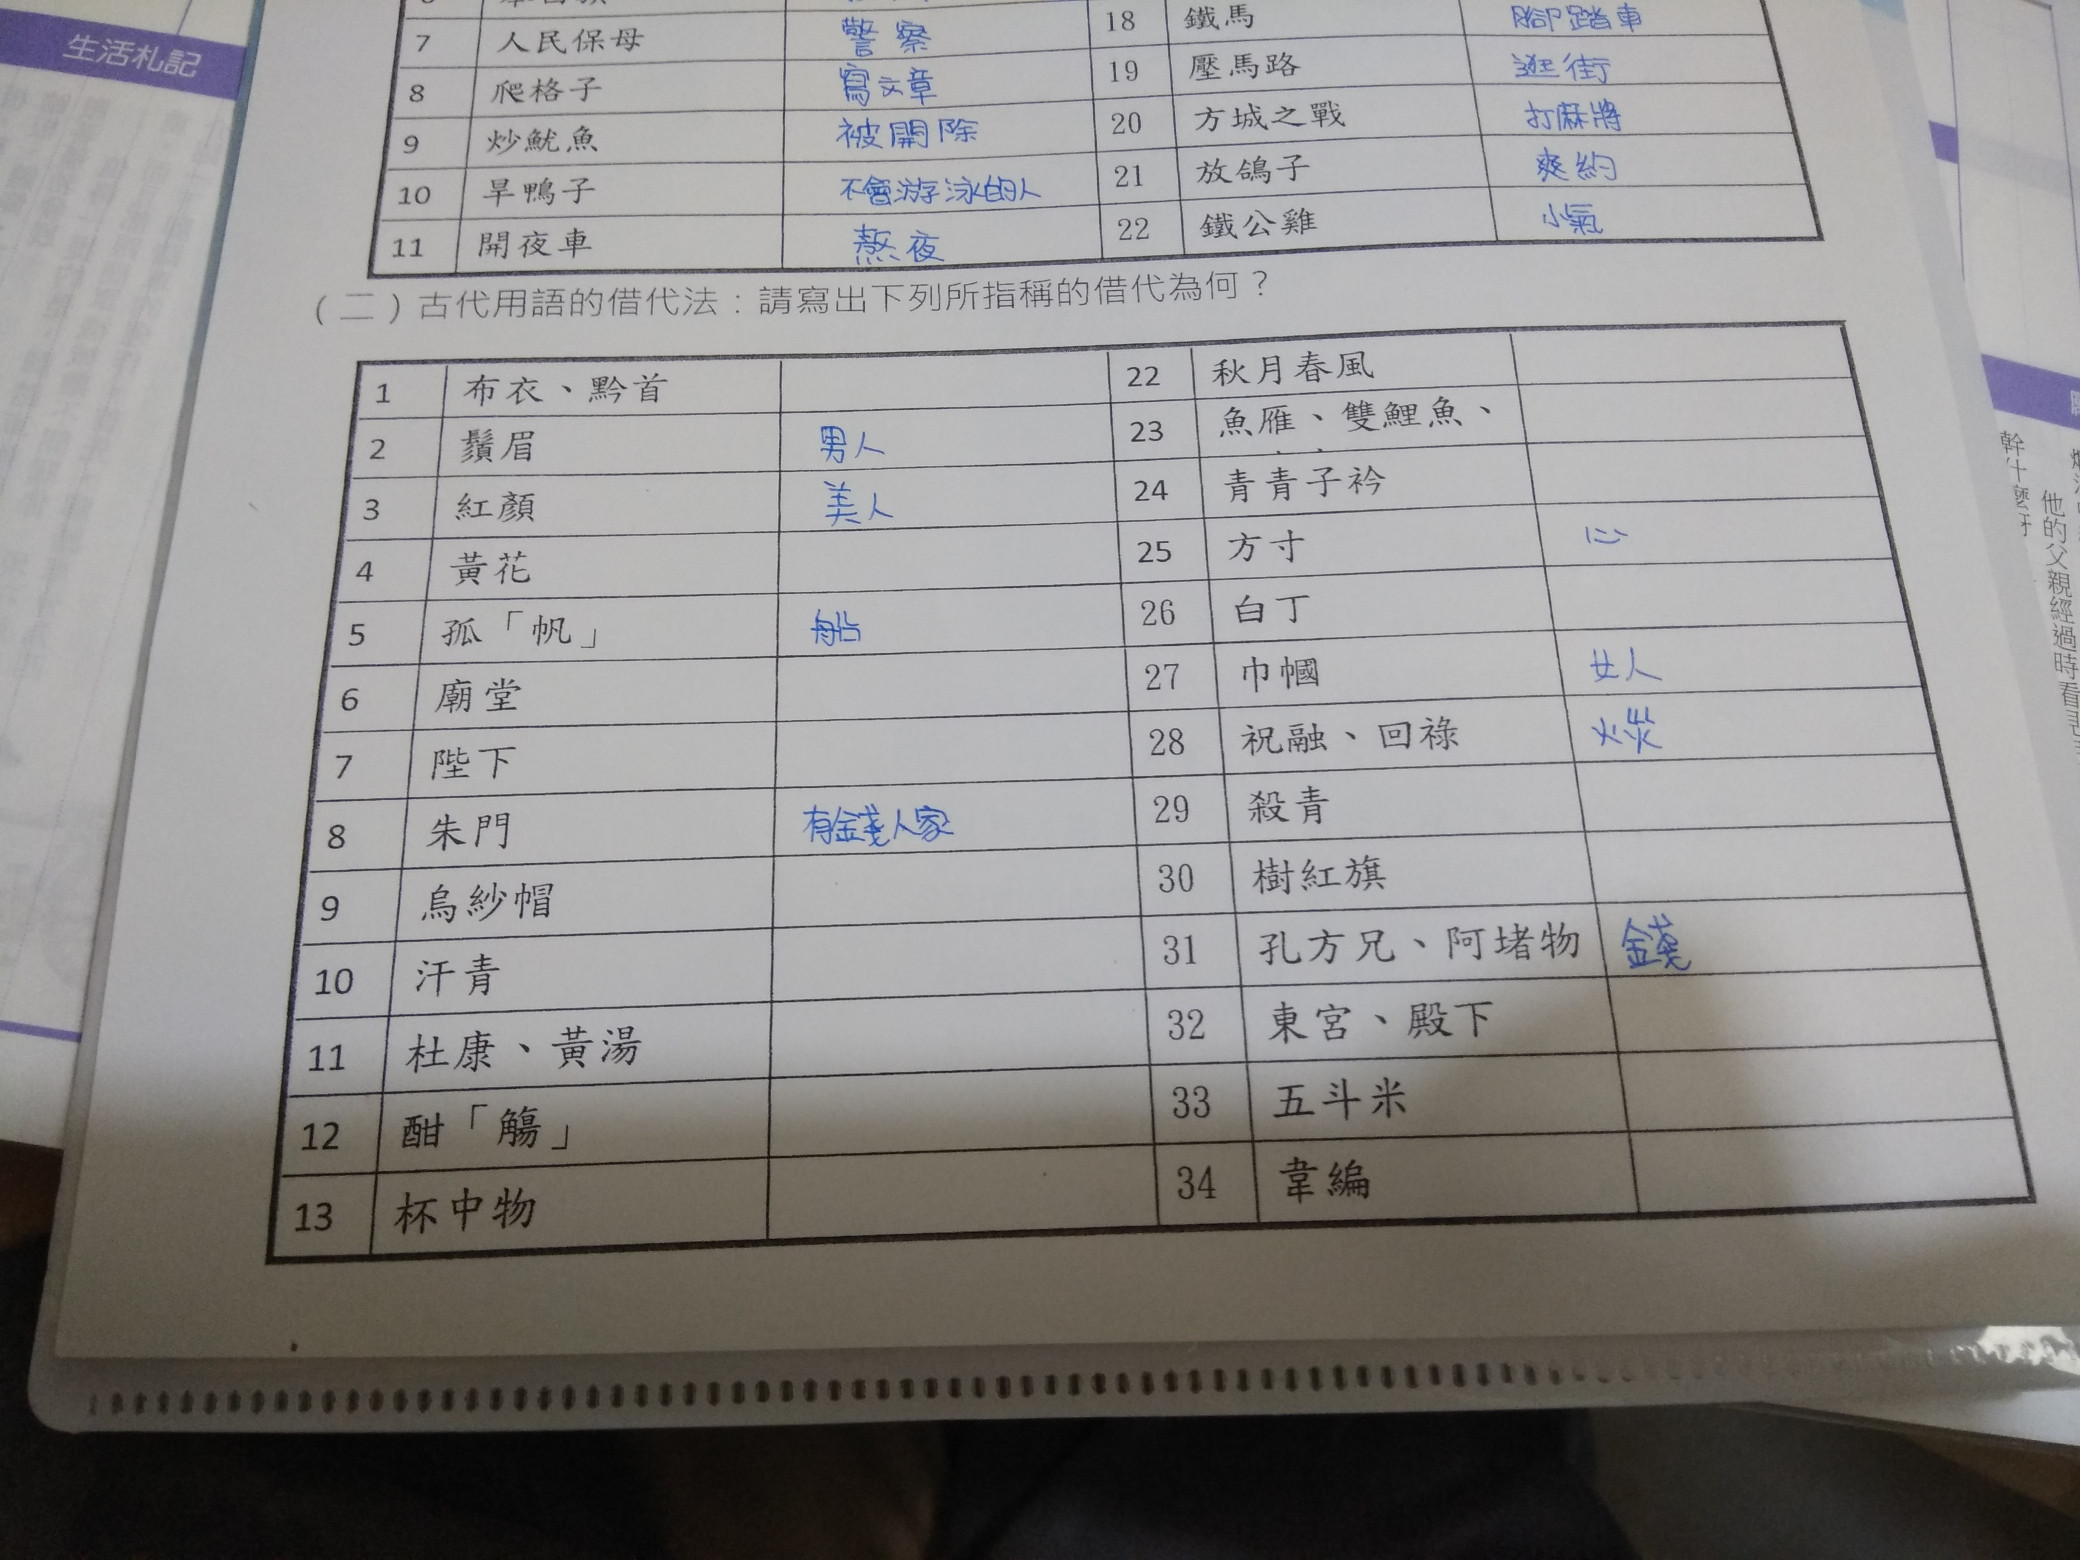 生活札記
7 人民保母 警察 18 鐵馬 腳踏車
8 爬格子 寫文章 19 壓馬路 逛街
9 炒魷魚 被開除 20 方城之戰 打麻將
10 旱鴨子 不會游泳的人 21 放鴿子 爽約
11 開夜車 熬夜 22 鐵公雞 小氣
(二)古代用語的借代法：請寫出下列所指稱的借代為何？
1 布衣、黔首 22 秋月春風
2 鬚眉 男人 23 魚雁、雙鯉魚、
3 紅顏 美人 24 青青子衿
4 黃花 25 方寸 心
5 孤「帆」 船 26 白丁
6 廟堂 27 巾幗 女人
7 陛下 28 祝融、回祿 火災
8 朱門 有錢人家 29 殺青
9 烏紗帽 30 樹紅旗
10 汗青 31 孔方兄、阿堵物 錢
11 杜康、黃湯 32 東宮、殿下
12 酣「觴」 33 五斗米
13 杯中物 34 韋編
他的父親經過時看
幹什麼呀